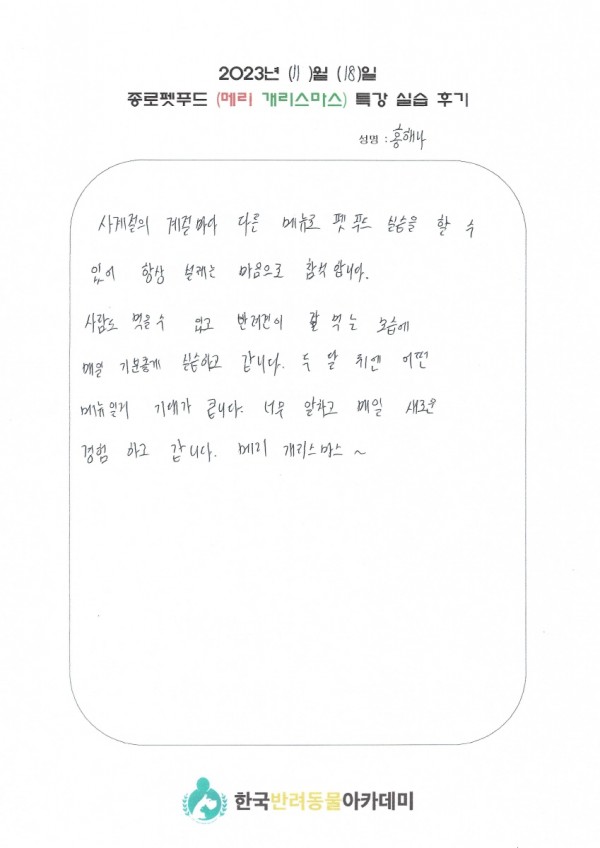 2023년 (11)월 (18)일
종로펫푸드 (메리 개리스마스) 특강 실습 후기
성명 : 홍해나
사계절의 계절마다 다른 메뉴로 펫푸드 실습을 할 수
있어 항상 설레는 마음으로 참석합니다.
사람도 먹을 수 있고 반려견이 잘 먹는 모습에
매일 기분좋게 실습하고 갑니다. 두 달 뒤엔 어떤
메뉴일지 기대가 큽니다. 너무 알차고 매일 새로운
경험 하고 갑니다. 메리 개리스마스 ~
한국반려동물아카데미